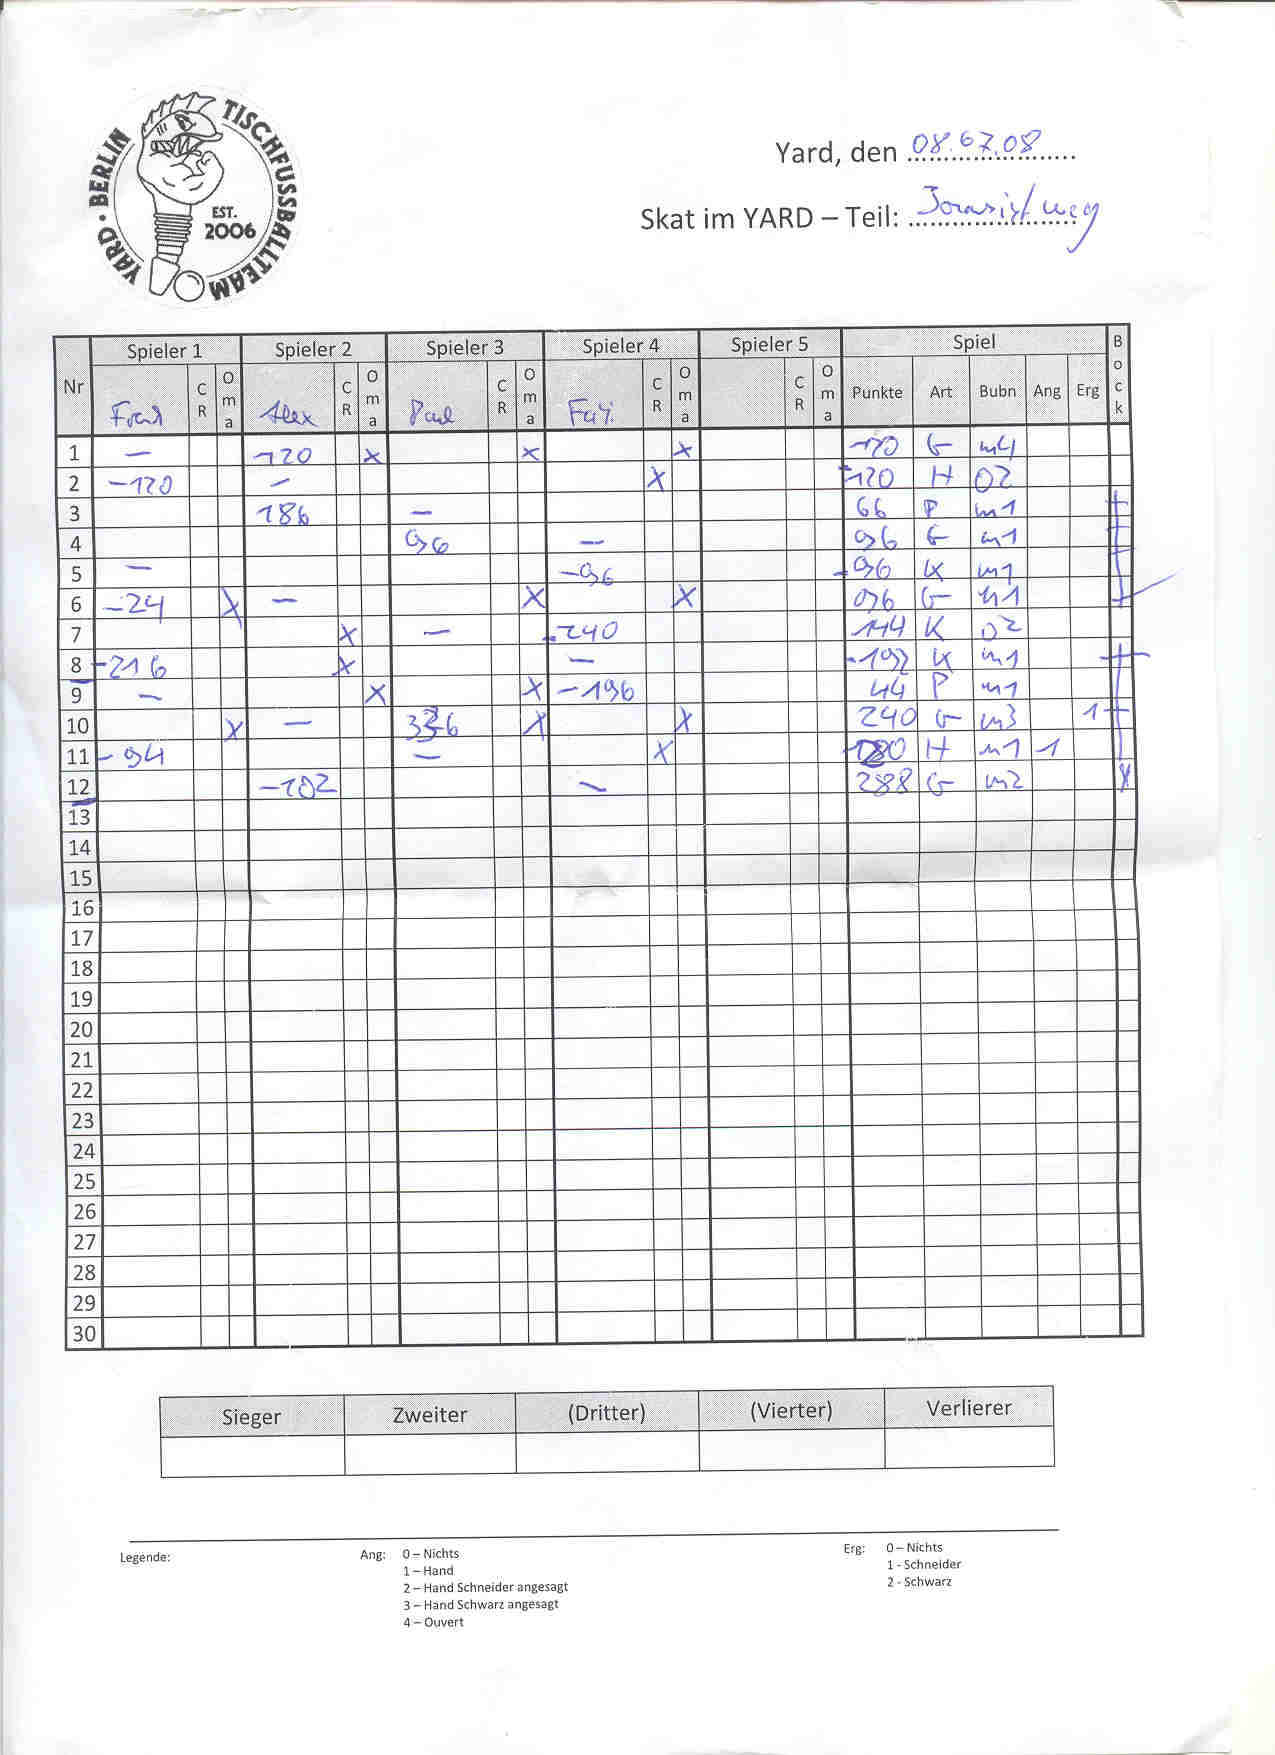 YARD · BERLIN TISCHFUSSBALLTEAM
EST.
2006
Yard, den 08.07.08
Skat im YARD – Teil: ist weg
Nr Spieler 1 Spieler 2 Spieler 3 Spieler 4 Spieler 5 Spiel Bock
CR Oma Alex CR Oma Paul CR Oma CR Oma CR Oma Punkte Art Bubn Ang Erg
1 – 120 X X X G m4
2 –120 – X -120 H O2
3 186 – 66 P m1
4 96 – 96 G m1
5 – –96 -96 K m1
6 –24 X – X X 096 G m1
7 X – -240 144 K O2
8 -216 X – -192 K m1
9 – X X –196 44 P m1
10 X – X X 240 G m3 1
11 -94 – X H m1 1
12 –102 – 288 G m2 X
13
14
15
16
17
18
19
20
21
22
23
24
25
26
27
28
29
30
Sieger Zweiter (Dritter) (Vierter) Verlierer
Legende: Ang: 0 – Nichts Erg: 0 – Nichts
1 – Hand 1 - Schneider
2 – Hand Schneider angesagt 2 - Schwarz
3 – Hand Schwarz angesagt
4 – Ouvert